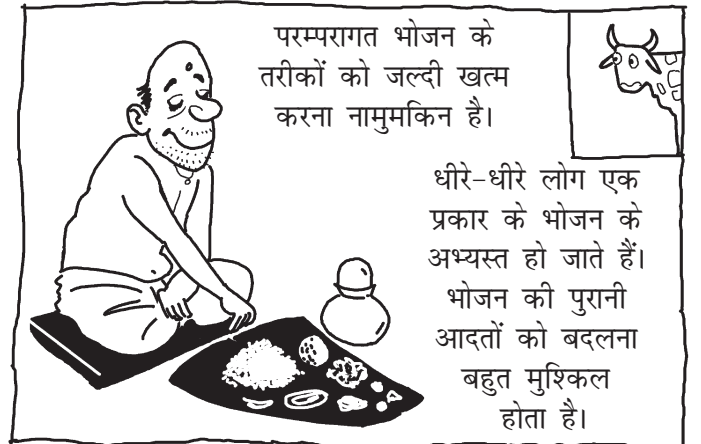 परम्परागत भोजन के
तरीकों को जल्दी खत्म
करना नामुमकिन है।
धीरे-धीरे लोग एक
प्रकार के भोजन के
अभ्यस्त हो जाते हैं।
भोजन की पुरानी
आदतों को बदलना
बहुत मुश्किल
होता है।